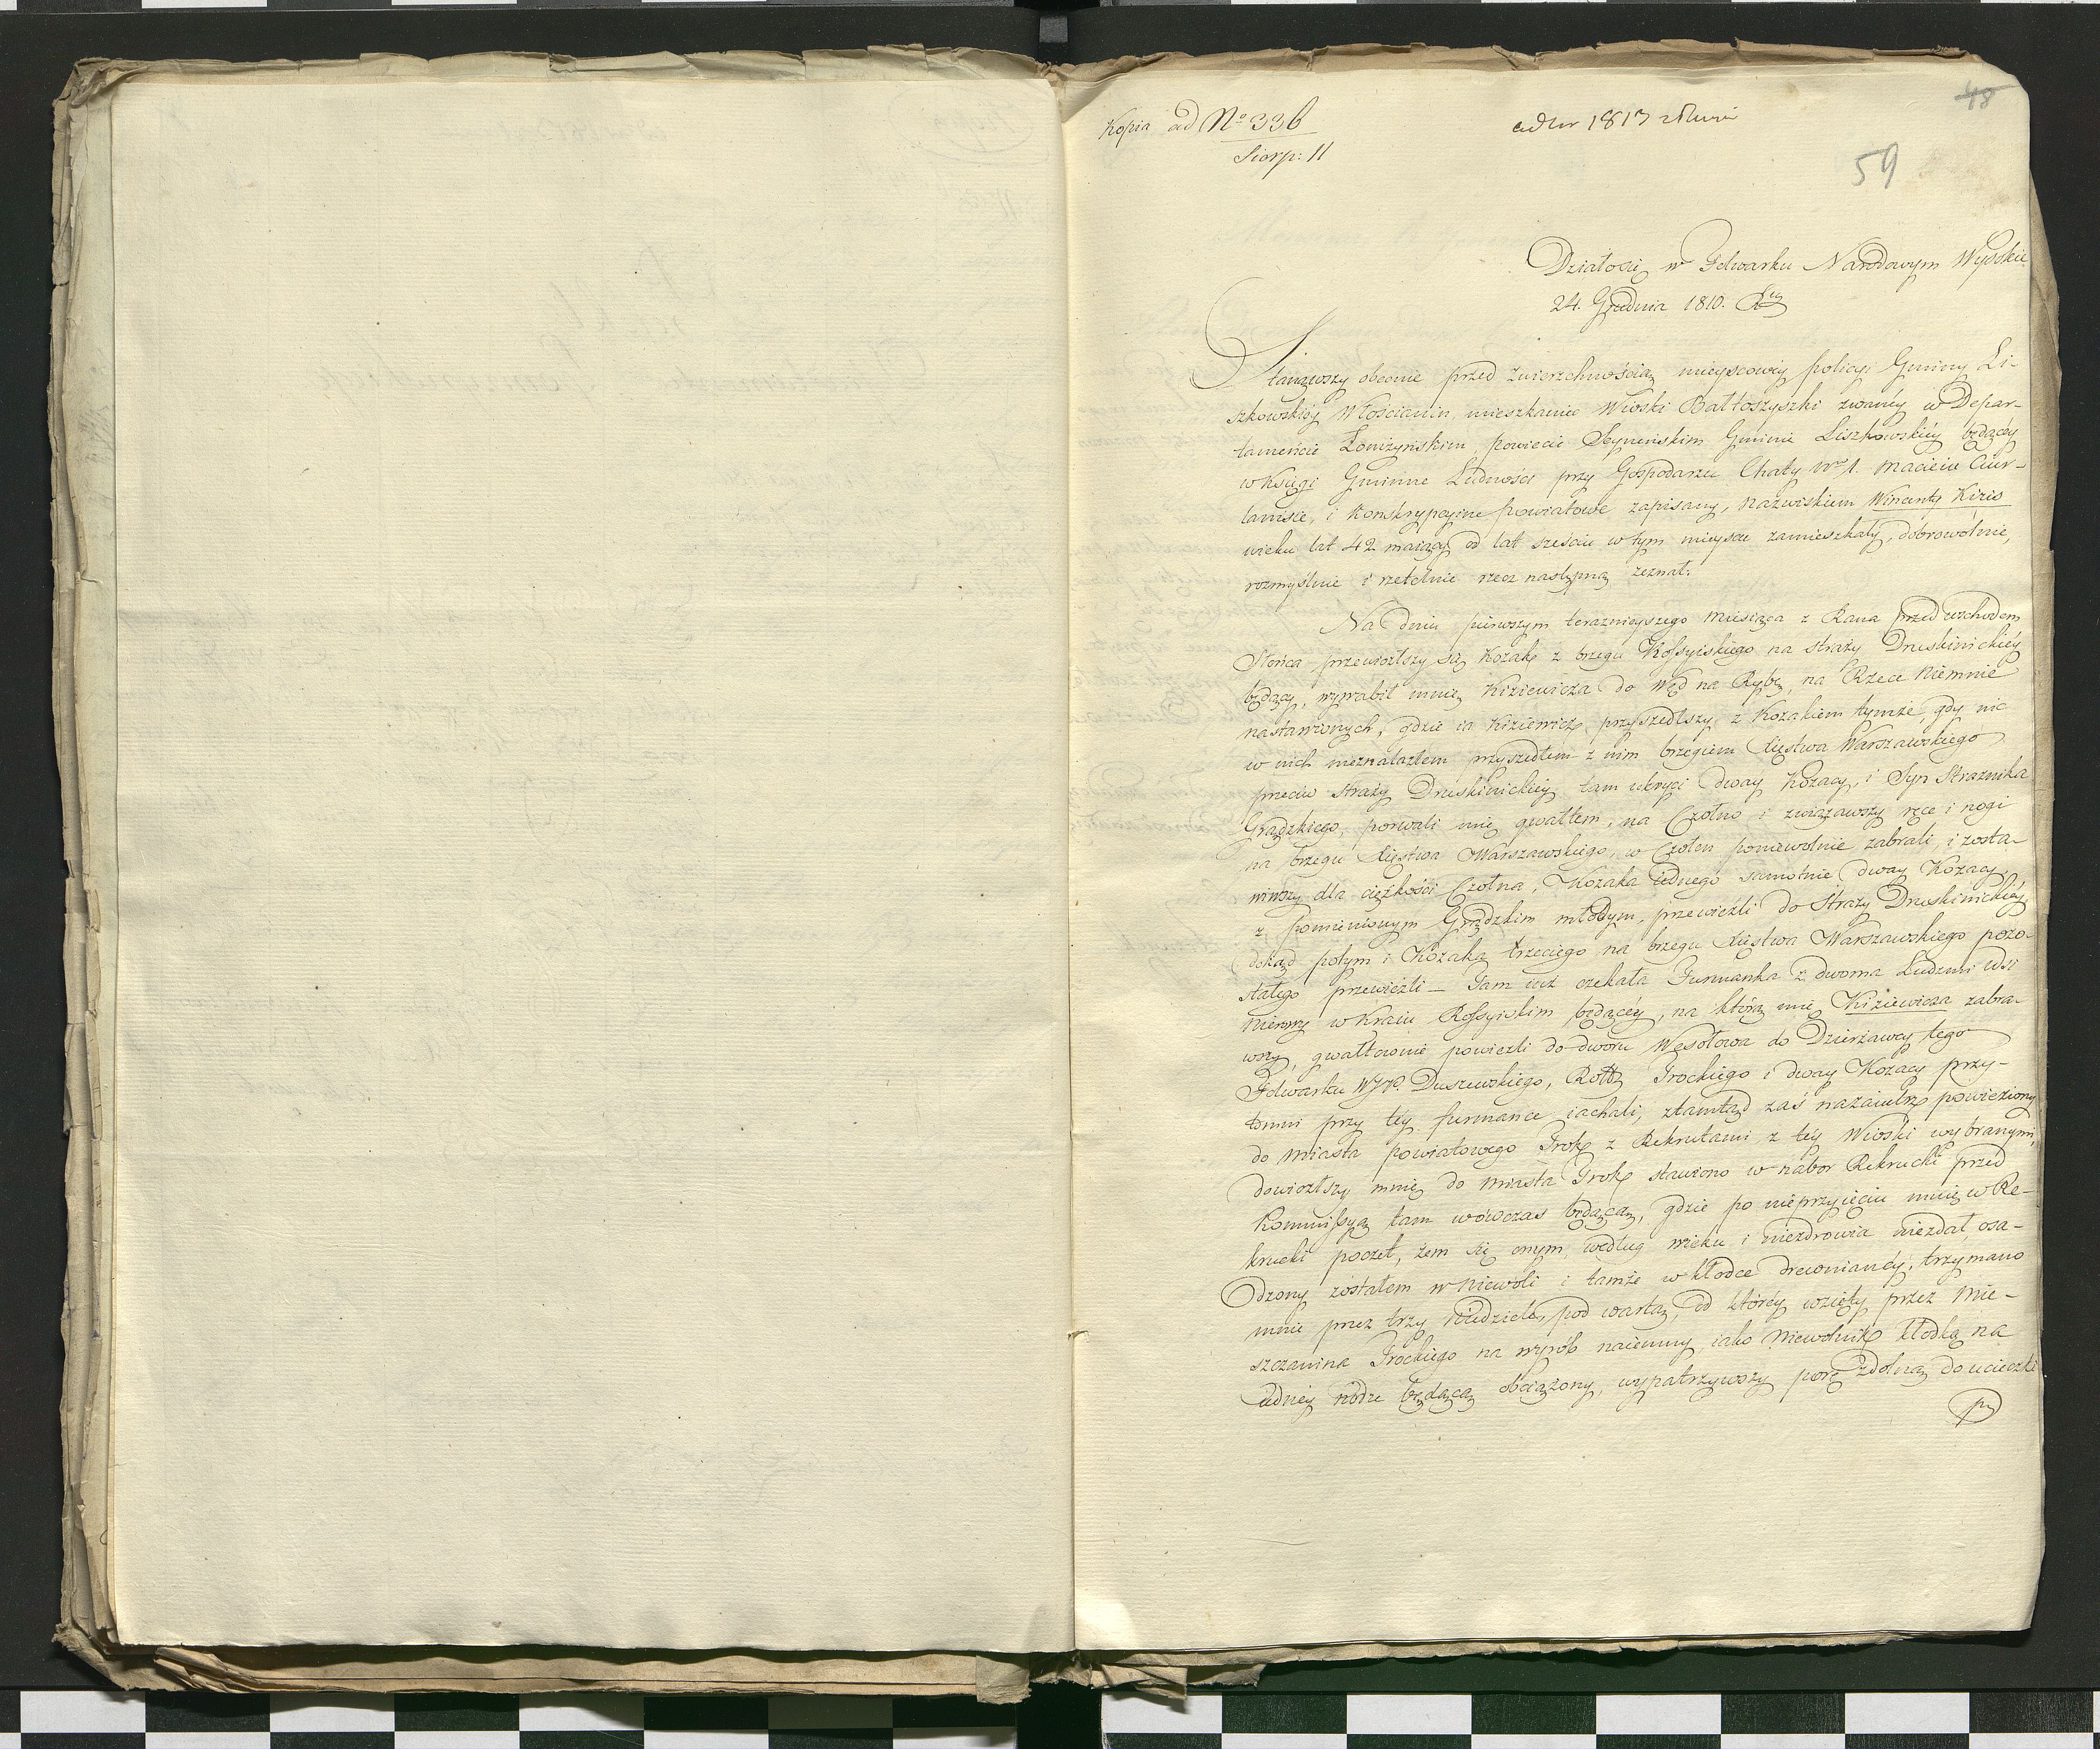 48
Kopia ad No 336
Sierp: 11
ad Nr 1813
59
Działosię w Folwarku Narodowym Wysokie
24. Grudnia 1810. Rku
Stanąwszy obecnie przed zwierzchnością mieyscowéy policyi Gminy Li-
szkowskiéy Włościanin mieszkaniec Wioski Bałtoszyszki zwanéy w Depar-
tamencie Łomżyńskim, powiecie Seyneńskim Gminie Liszkowskiéy będącéy
w Księgi Gminne Ludności przy Gospodarzu Chaty Nro 1. Macieiu
i Konskrypcyine powiatowe zapisany, nazwiskiem Wincenty Kizis
wieku lat 42 maiący od lat sześciu w tym mieyscu zamieszkały, dobrowolnie,
rozmyślnie i rzetelnie rzecz następną zeznał.
Na dniu pierwszym teraznieyszego Miesiąca z Rana przed wschodem
Słońca przewiozłszy się Kozak z brzegu Rossyiskiego na straży Druskinickiéy
będący, wywabił mnie Kiziewicza do Węd na Rybę, na Rzece Niemnie
nastawionych, gdzie ia Kiziewicz przyszedłszy z Kozakiem tymże, gdy nic
w nich nieznalazłem przyszedłem z nim brzegiem Xięstwa Warszawskiego
przeciw Straży Druskinickiéy tam ukryci dway Kozacy, i Syn Strażnika
Grądzkiego, porwali mię gwałtem, na Czołno i związawszy ręce i nogi
na brzegu Xięstwa Warszawskiego, w Czółen poniewolnie zabrali, i zosta-
wiwszy dla ciężkości Czołna, Kozaka iednego samotnie dway Kozacy
z pomienionym Grądzkim młodym, przewieźli do Straży Druskinickiéy,
dokąd potym i Kozaka trzeciego na brzegu Xięstwa Warszawskiego pozo-
stałego przewieźli — Tam iuż czekała Furmanka z dwoma Ludzmi wsi
w Kraiu Rossyiskim będącéy, na którą mię Kiziewicza zabra-
wszy, gwałtownie powiezli do dworu Wesołowa do Dzierżawcy tego
Folwarku WJP. Duszewskiego, Rottm Trockiego i dway Kozacy przy-
tomni przy téy furmance iachali, ztamtąd zaś nazaiutrz powieziony
do Miasta powiatowego Trok z Rekrutami z téy Wioski wybranymi,
dowiozłszy mnie do Miasta Trok stawiono w nabor Rekrucki przed
Kommissyą tam wówczas będącą, gdzie po nieprzyięciu mnie w Re-
krucki poczet, żem się onym według wieku i niezdrowia niezdał, osa-
dzony zostałem w Niewoli i tamże w kłodce drewnianéy, trzymano
mnie przez trzy Niedziele, pod wartą, od któréy wzięty przez Mie-
szczanina Trockiego na wyrób naiemny, iako Niewolnik kłodką na
iednéy nodze będącą obciążony, wypatrzywszy porę zdolną do ucieczki